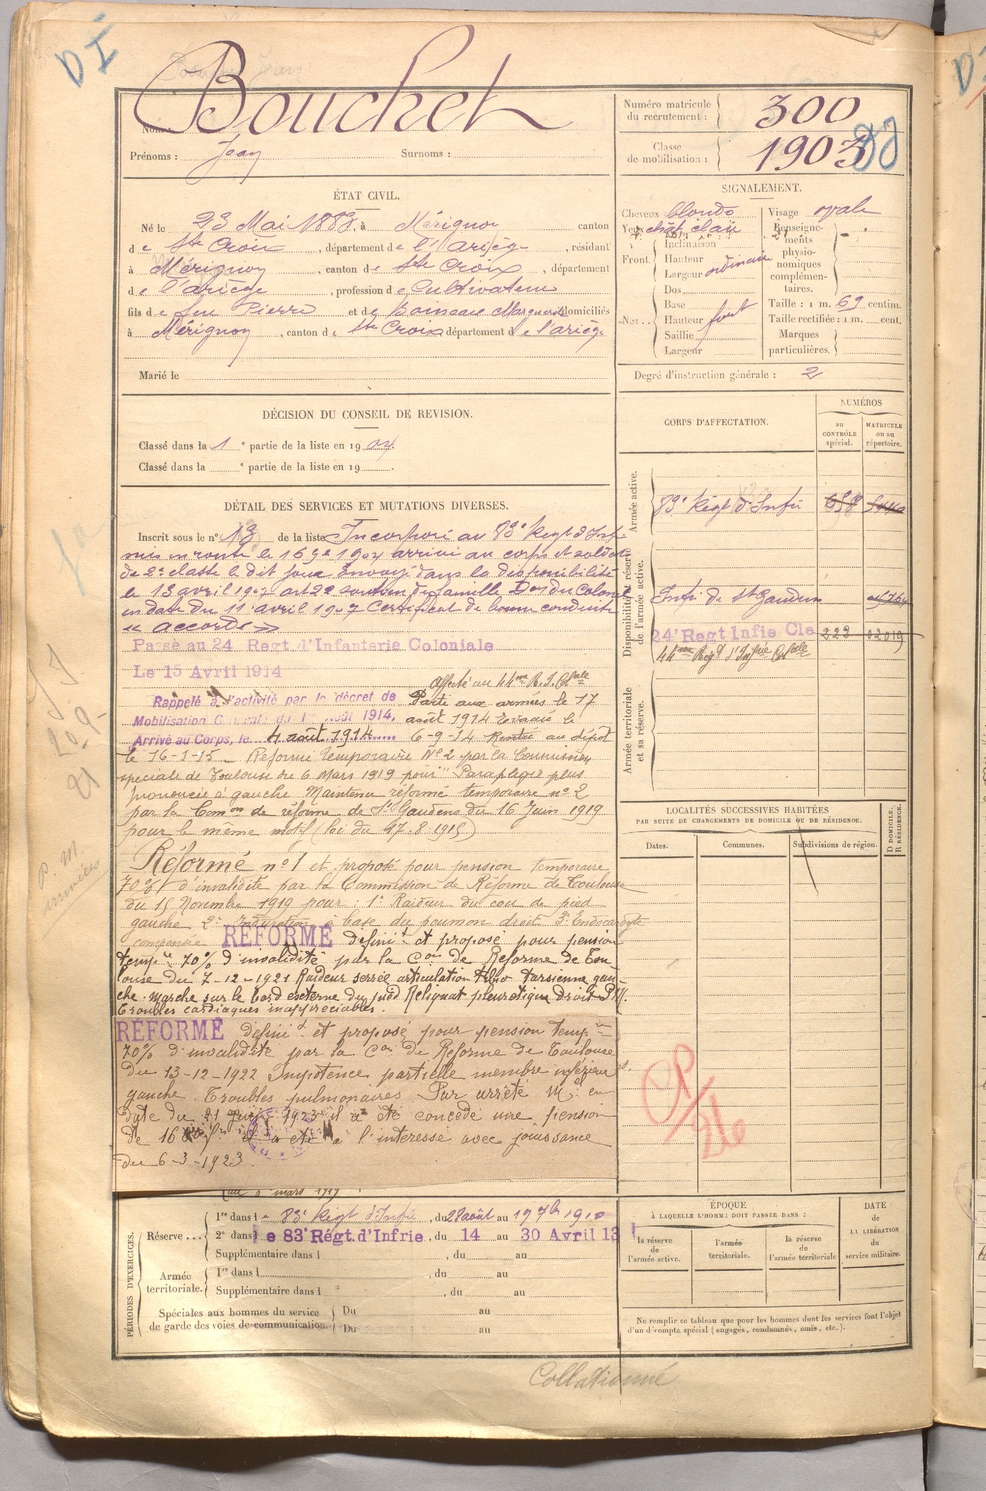 D I
Bouchet
Nom :
Prénoms : Jean Surnoms :
Numéro matricule du recrutement : 300
Classe de mobilisation : 1903
ÉTAT CIVIL.
Né le 23 Mai 1883, à Mérignon canton
de Ste Croix, département de l'Ariège, résidant
à Mérignon, canton de Ste Croix, département
de l'ariège, profession de Cultivateur
fils de feu Pierre et de Marguerite domiciliés
à Mérignon, canton de Ste Croix département de l'ariège
Marié le
SIGNALEMENT.
Cheveux blonds
Yeux chât clair
Front. Inclinaison
Hauteur
Largeur ordinaire
Nez. Dos
Base
Hauteur fort
Saillie
Largeur
Visage ovale
Renseignements physionomiques complémentaires.
Taille : 1 m. 69 centim.
Taille rectifiée : 1 m. cent.
Marques particulières.
Degré d'instruction générale : 2
DÉCISION DU CONSEIL DE REVISION.
Classé dans la 1e partie de la liste en 1904.
Classé dans la e partie de la liste en 19 .
DÉTAIL DES SERVICES ET MUTATIONS DIVERSES.
Inscrit sous le n° 13 de la liste Incorporé au 83e Regt d'Inf
mis en route le 16 9e 1904 arrivé au corps et soldat
de 2e classe le dit jour Envoyé dans la disponibilité
le 13 avril 1907 art 22 soutien de famille Don du Colonel
en date du 11 avril 1907 Certificat de bonne conduite
« accordé »
Passé au 24 Regt. d'Infanterie Coloniale
Le 15 Avril 1914
Affecté au 44me R.I.Cale
Rappelé à l'activité par le décret de
Mobilisation Générale du 1er Août 1914.
Arrivé au Corps, le 4 août 1914
Parti aux armées le 17
août 1914 Evacué le
6-9-14 Rentré au dépôt
le 16-1-15 _ Réforme temporaire N°2 par la Commission
spéciale de Toulouse du 6 Mars 1919 pour "Paraplegie plus
prononcée à gauche Maintenu réformé temporaire n° 2
par la Comon de réforme de St Gaudens du 16 Juin 1919
pour le même motif (loi du 17.8.1915)
Réformé n° 1 et proposé pour pension temporaire
70% d'invalidité par la Commission de Réforme de Toulouse
du 15 Novembre 1919 pour : 1° Raideur du cou de pied
gauche 2° Induration à base du poumon droit 3° Endocardite
compensée RÉFORMÉ définit et proposé pour pension
tempre 70% d'invalidité par la Con de Reforme de Tou-
louse du 7-12-1921 Raideur serrée articulation tibio tarsienne gau-
che. Marche sur le bord externe du pied Reliquat pleurétique Droit
troubles cardiaques inappréciables.
RÉFORMÉ définit et proposé pour pension temp
70% d'invalidité par la Con de Réforme de Toulouse
du 13-12-1922 Impotence partielle membre inférieur
gauche. Troubles pulmonaires Par arrêté Mel en
date du 21 1923 il a été concédé une pension
de à l'intéressé avec jouissance
du 6-3-1923.
CORPS D'AFFECTATION.
NUMÉROS
AU CONTRÔLE spécial.
MATRICULE ou au répertoire.
Armée active.
83e Régt d'Infie 658
Disponibilité et réserve de l'armée active.
Infie de St Gaudens
24e Regt Infie Cle 223 02019
44me Regt d'Infie Colale
Armée territoriale et sa réserve.
LOCALITÉS SUCCESSIVES HABITÉES
PAR SUITE DE CHANGEMENTS DE DOMICILE OU DE RÉSIDENCE.
Dates. Communes. Subdivisions de région. D DOMICILE. R RÉSIDENCE.
PÉRIODES D'EXERCICES.
Réserve ... 1re dans le 83e Régt d'Infie, du 28 août au 19 7bre 1910
2e dans le 83e Régt. d'Infrie, du 14 au 30 Avril 13
Supplémentaire dans l , du au
Armée territoriale. 1re dans l , du au
Supplémentaire dans l , du au
Spéciales aux hommes du service de garde des voies de communication. Du au
Du au
ÉPOQUE
À LAQUELLE L'HOMME DOIT PASSER DANS :
la réserve de l'armée active.
l'armée territoriale.
la réserve de l'armée territoriale
DATE de LA LIBÉRATION du service militaire.
Ne remplir ce tableau que pour les hommes dont les services font l'objet
d'un décompte spécial (engagés, condamnés, omis, etc.).
Collationné